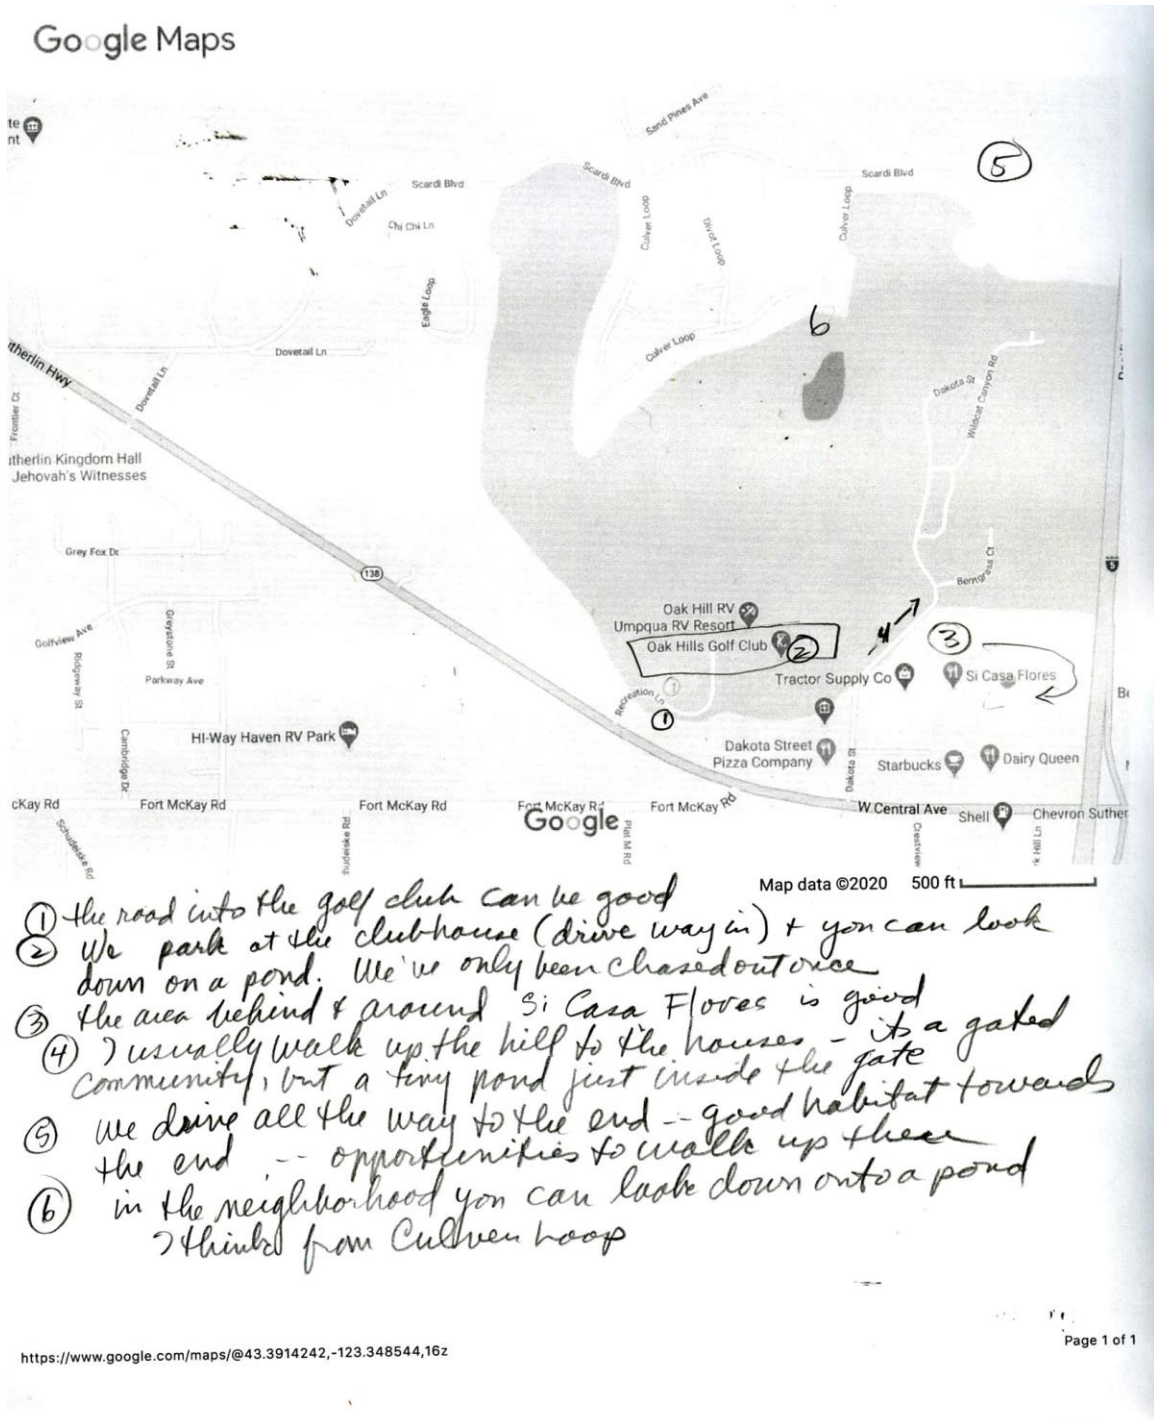 Google Maps
te
nt
Sand Pines Ave
5
Scardi Blvd
Scardi Blvd
Scardi Blvd
Dovetail Ln
Chi Chi Ln
Culver Loop
Divot Loop
Culver Loop
Eagle Loop
6
Culver Loop
utherlin Hwy
Dovetail Ln
Dovetail Ln
Frontier Ct
Dakota St
Wildcat Canyon Rd
utherlin Kingdom Hall
Jehovah's Witnesses
Grey Fox Dr
138
5
Berngrass Ct
Golfview Ave
Greystone St
Ridgeway St
Parkway Ave
Oak Hill RV
Umpqua RV Resort
Oak Hills Golf Club
2
4
3
Tractor Supply Co
Si Casa Flores
Recreation Ln
1
1
Be
HI-Way Haven RV Park
Cambridge Dr
Dakota Street
Pizza Company
Dakota St
Starbucks
Dairy Queen
cKay Rd
Fort McKay Rd
Fort McKay Rd
Fort McKay Rd
Fort McKay Rd
W Central Ave
Shell
Chevron Suther
Google
Schudeiske Rd
hudeiske Rd
Plat M Rd
Crestview
k Hill Ln
Map data ©2020 500 ft
1 the road into the golf club can be good
2 We park at the clubhouse (drive way in) + you can look
down on a pond. We've only been chased out once
3 the area behind & around Si Casa Flores is good
4 I usually walk up the hill to the houses - its a gated
community, but a tiny pond just inside the gate
5 we drive all the way to the end -- good habitat towards
the end -- opportunities to walk up there
6 in the neighborhood you can look down onto a pond
I think from Culver Loop
https://www.google.com/maps/@43.3914242,-123.348544,16z
Page 1 of 1